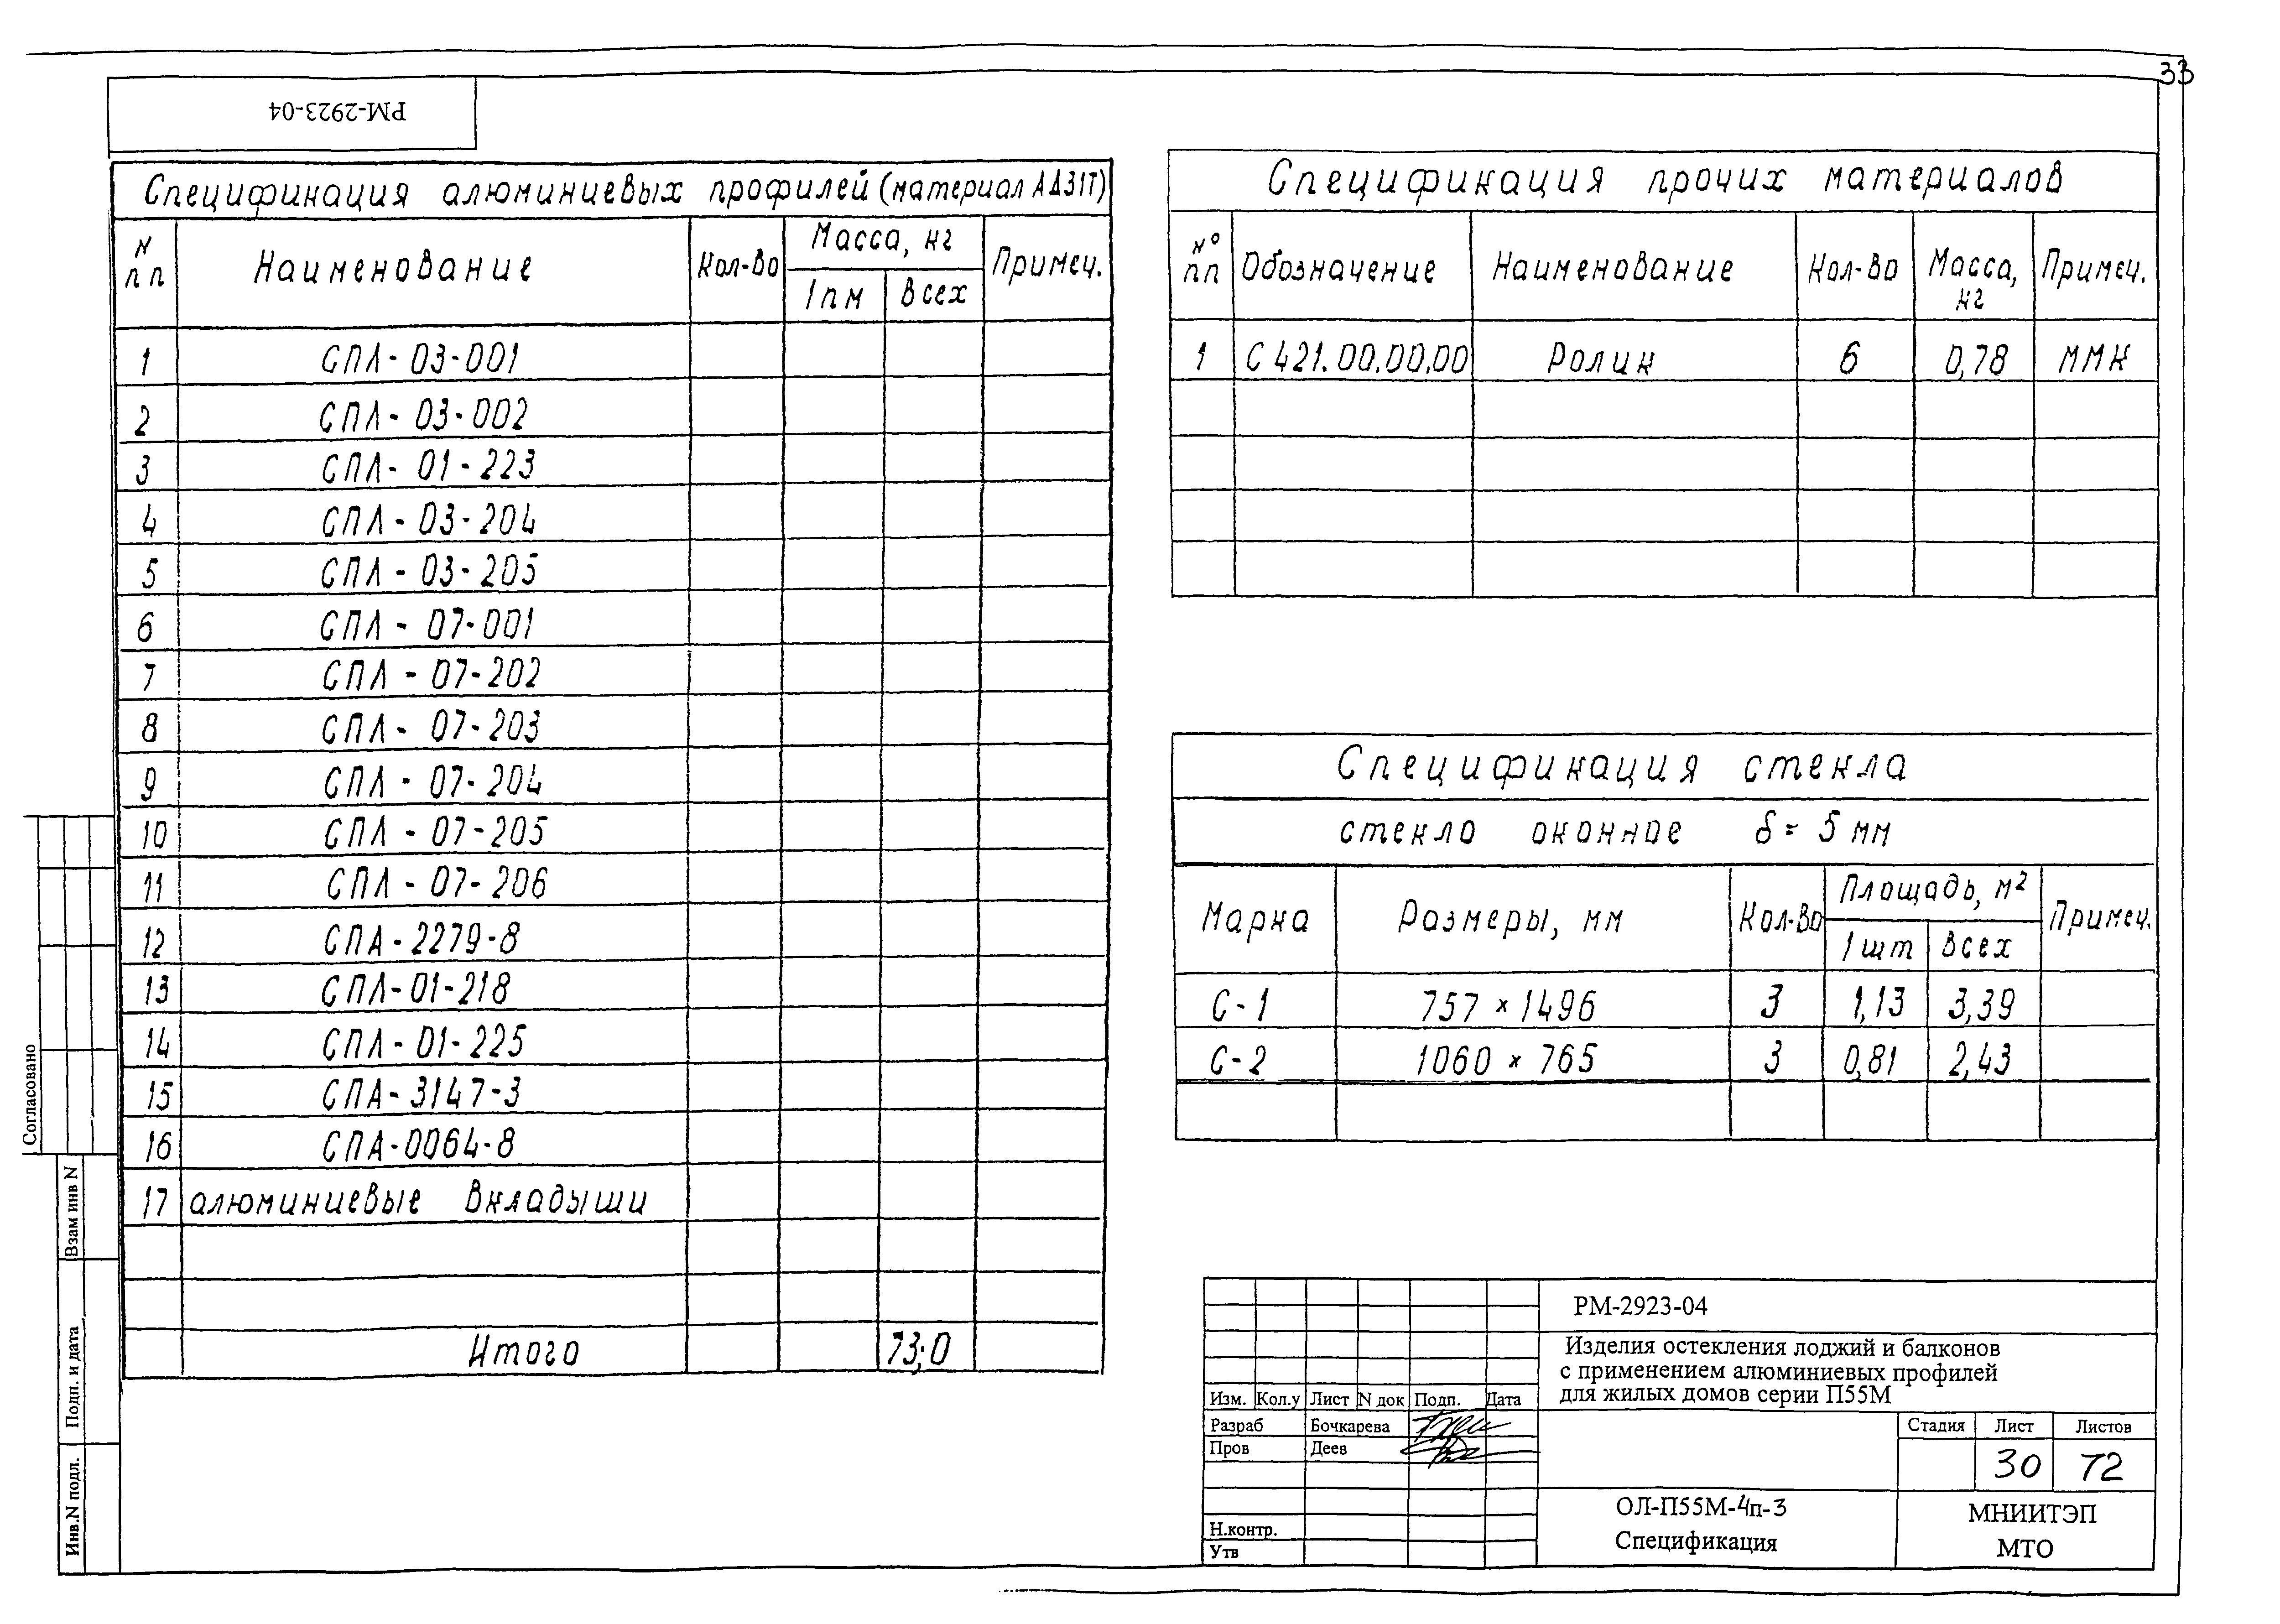 33
РМ-2923-04
Спецификация алюминиевых профилей (материал АД31Т)
N пп Наименование Кол-во Масса, кг Примеч.
1пм Всех
1 СПЛ-03-001
2 СПЛ-03-002
3 СПЛ-01-223
4 СПЛ-03-204
5 СПЛ-03-205
6 СПЛ-07-001
7 СПЛ-07-202
8 СПЛ-07-203
9 СПЛ-07-204
10 СПЛ-07-205
11 СПЛ-07-206
12 СПА-2279-8
13 СПЛ-01-218
14 СПЛ-01-225
15 СПА-3147-3
16 СПА-0064-8
17 алюминиевые вкладыши
Итого 73,0
Спецификация прочих материалов
№ пп Обозначение Наименование Кол-во Масса, кг Примеч.
1 С 421.00.00.00 Ролик 6 0,78 ММК
Спецификация стекла
стекло оконное δ= 5 мм
Марка Размеры, мм Кол-во Площадь, м² Примеч.
1 шт Всех
С-1 757 × 1496 3 1,13 3,39
С-2 1060 × 765 3 0,81 2,43
Согласовано
Взам инв N
Подп. и дата
Инв.N подл.
РМ-2923-04
Изделия остекления лоджий и балконов
с применением алюминиевых профилей
для жилых домов серии П55М
Изм. Кол.у Лист N док Подп. Дата
Разраб Бочкарева
Пров Деев
Н.контр.
Утв
Стадия Лист Листов
30 72
ОЛ-П55М-4п-3
Спецификация
МНИИТЭП
МТО